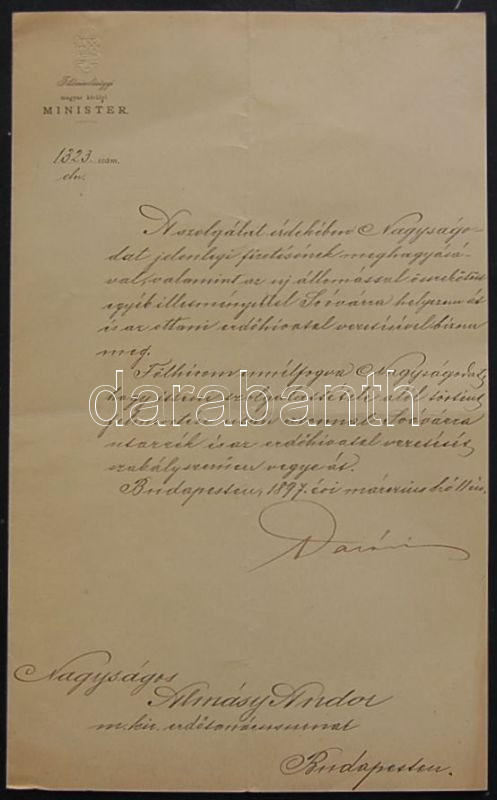 Földmívelésügyi
magyar királyi
MINISTER.
1323. szám.
eln.
A szolgálat érdekében Nagyságo-
dat jelenlegi fizetésének meghagyásá-
val, valamint az uj állomással összekötött
egyéb illetményekkel Soóvárra helyezem át
és az ottani erdőhivatal vezetésével bizom
meg.
Fölhivom ennélfogva Nagyságodat,
hogy jelenlegi szolgálattétele alól történt
fölmentése után azonnal Soóvárra
utazzék és az erdőhivatal vezetését
szabályszerüen vegye át.
Budapesten, 1897. évi márczius hó 11én.
darabanth
Darányi
Nagyságos
Almásy Andor
m. kir. erdőtanácsosnak
Budapesten.